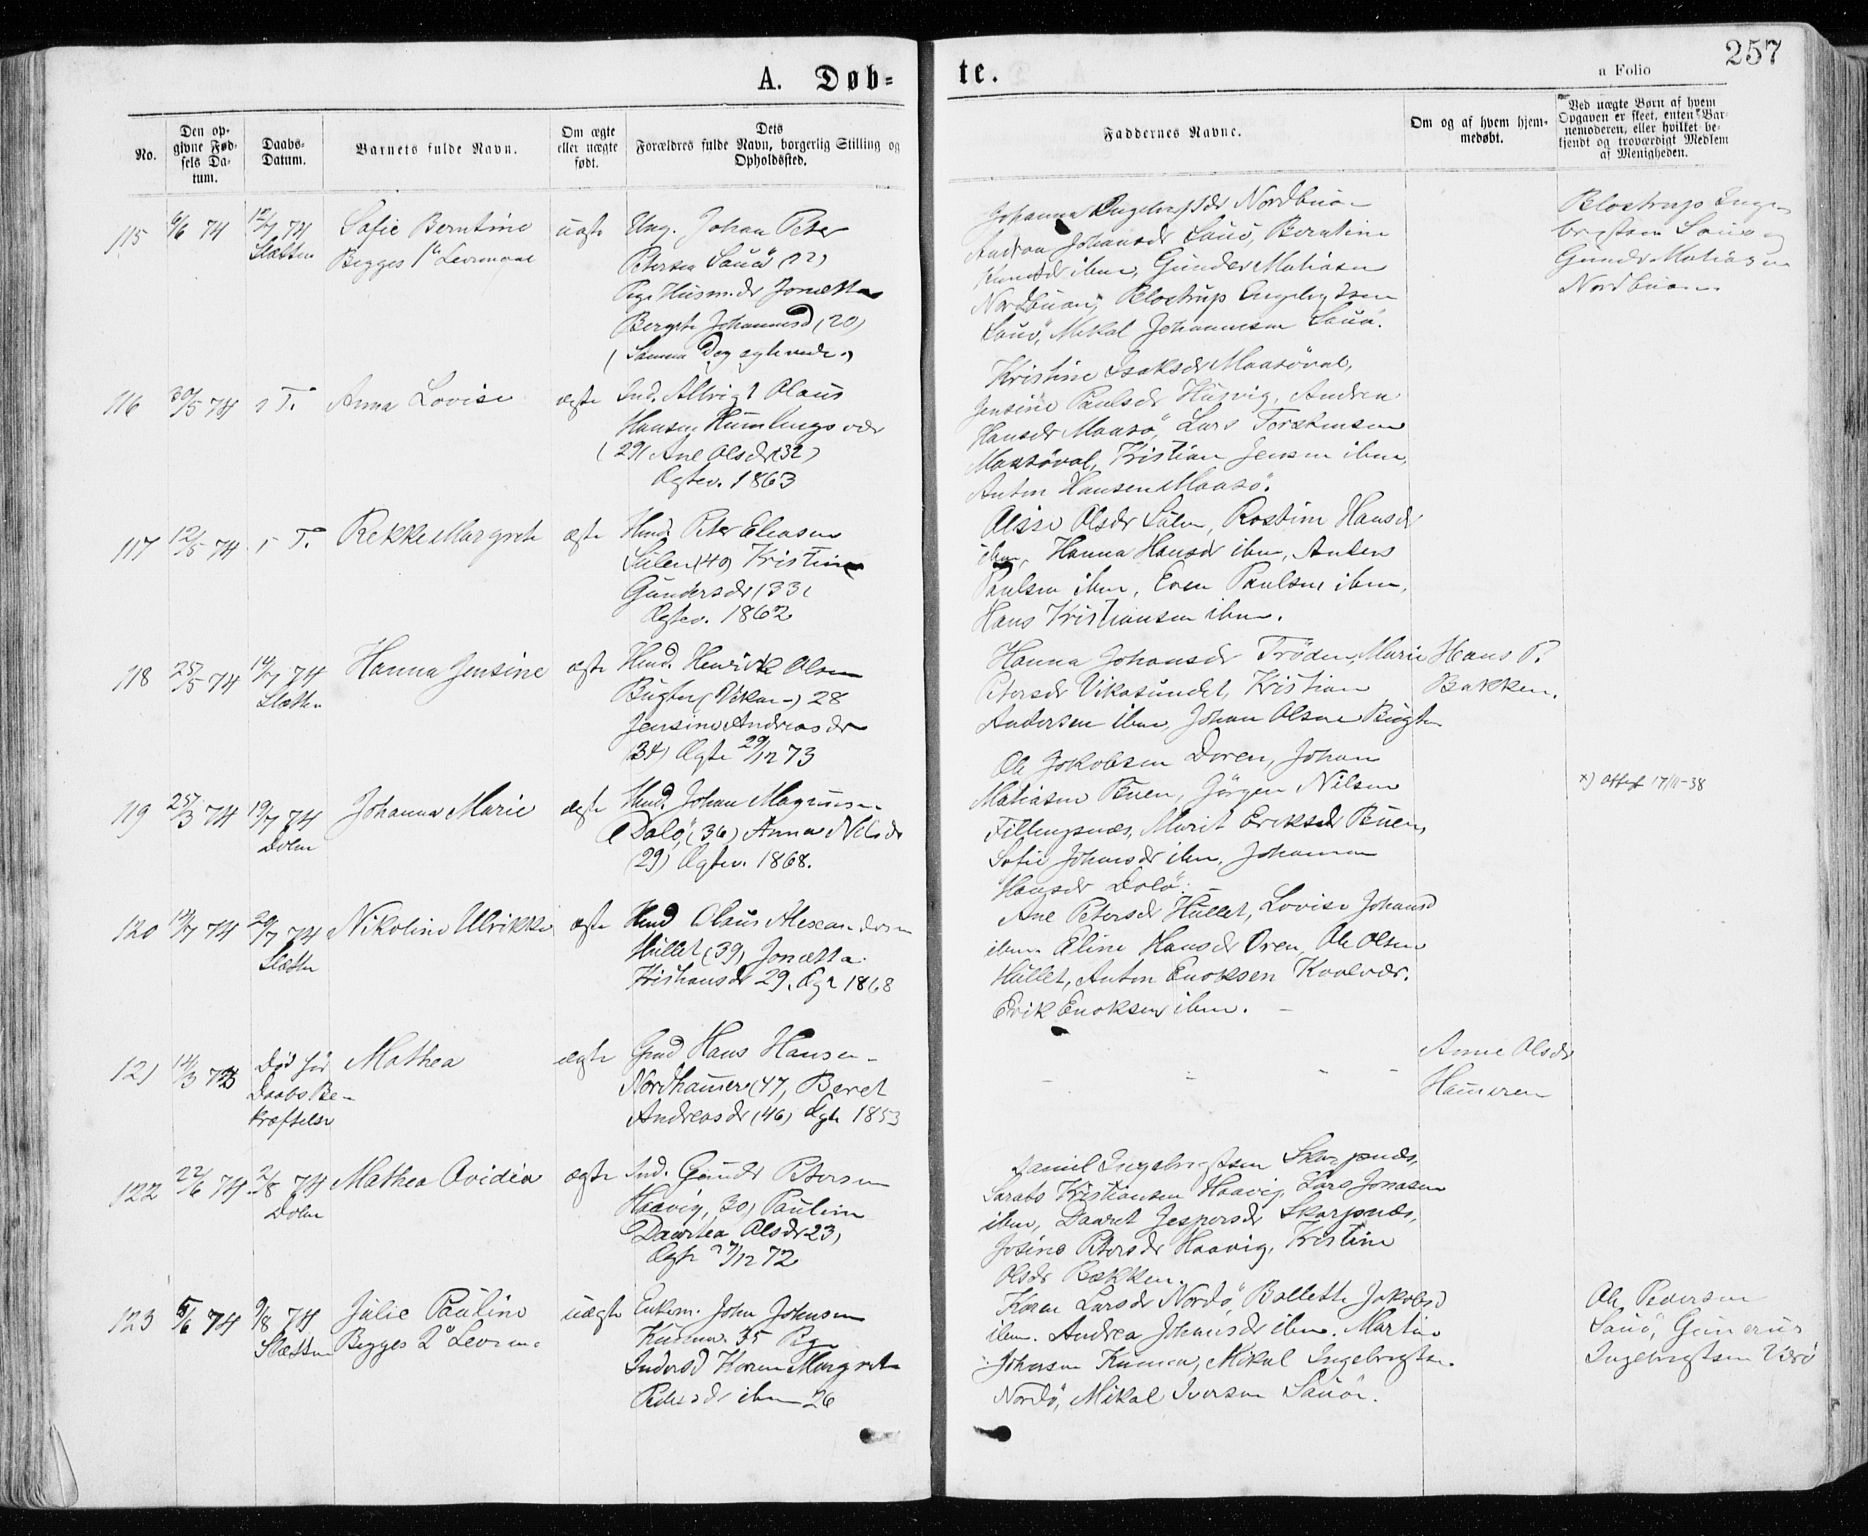 257
A. Døb-
te.
a Folio
No.
Den op-
givne Fød-
sels Da-
tum.
Daabs-
Datum.
Barnets fulde Navn.
Om ægte
eller uægte
født.
Dets
Forældres fulde Navn, borgerlig Stilling og
Opholdssted.
Faddernes Navne.
Om og af hvem hjem-
medøbt.
Ved uægte Børn af hvem
Opgaven er skeet, enten Bar-
nemoderen, eller hvilket be-
kjendt og troværdigt Medlem
af Menigheden.
115 6/6 74 12/7 74 Sofie Berntine uægte Ung. Johan Peter
Slætten Begges 1ste Leiermaal
Petersen Sauø (22)
Pige Husm.dr Jonetta
Bergite Johannesd (20)
(Samme Dag ægteviede)
Johanna Engebrigtsdr Nordbuan
Andrea Johansdr Sauø, Berntine
Knutsdr ibm, Gunder Matiasen
Nordbuan, Blostrup Engebrigtsen
Sauø, Mikal Johannesen Sauø.
Blostrup Inge-
brigtsen Sauø og
Gunder Matiasen
Nordbuan
116 30/5 74 s. T. Anna Lovise ægte Ind. Albrigt Olaus
Hansen Humlingsvær
(29) Ane Olsdr (32)
Ægtev. 1863
Kristine Isaksdr Maasøval,
Jensine Paulsdr Husvig, Andrea
Hansdr Maasø, Lars Torstensen
Maasøval, Kristian Jensen ibm,
Anton Hansen Maasø.
117 12/5 74 s. T. Rekke Margrete ægte Hmd. Peter Eliasen
Sulen (40) Kristine
Gundersdr (33)
Ægtev. 1862
Olsdr Sulen, Rostine Hansdr
ibm, Hanna Hansdr ibm, Anders
Paulsen ibm, Even Paulsen ibm,
Hans Kristiansen ibm.
118 25/5 74 19/7 74 Hanna Jensine ægte Hmd. Henrik Olsen
Slætten
Bugten (Vikan) 28
Jensine Andreasdr
(34) Ægte 29/12 73
Hanna Johansdr Trøden, Marie
Petersdr Vikasundet, Kristian
Andersen ibm, Johan Olsen Bugten
Hans P.
Bakken.
119 25/3 74 19/7 74 Johanna Marie ægte Hmd. Johan Magnusen
Dolm
Dolø (36) Anna Nilsdr
(29) Ægtev. 1868.
Ole Jakobsen Doren, Johan
Matiasen Buen, Jørgen Nilsen
Fillingsnæs, Marit Eriksdr Buen,
Sofie Johansdr ibm, Johanna
Hansdr Dolø.
x) Attest 17/11-38
120 14/7 74 26/7 74 Nikoline Ulrikke ægte Hmd Olaus Alexandersen
Slætten
Hullet (39) Jonetta
Kristiansdr 29. Ægt 1868
Ane Petersdr Hullet, Lovise Johansd
ibm. Eline Hansdr Oren, Ole Olsen
Hullet, Anton Enoksen Kvalvær.
Erik Enoksen ibm. -
121 14/3 73 Død før Mathea ægte Gmd Hans Hansen
Daabs Be-
kræftelse
Nordhammer (47, Beret
Andreasdr (46) Ægte 1853
- - - -
Anne Olsdr
Hameren
122 22/6 74 2/8 74 Mathea Ovidia ægte Ind. Gunder Petersen
Dolm
Haavig, 30, Pauline
Dawitea Olsdr 23,
Ægte 27/12 72
Daniel Ingebrigtsen Skarpnæs,
Kristiansen Haavig, Lars Jonasen
ibm, Daaret Jespersdr Skarpnæs,
Josine Petersdr Haavig, Kristine
Olsdr Bækken.
123 5/6 74 9/8 74 Julie Pauline uægte Enkem. John Johnsen
Slætten Begges 2d Leierm.
Kunna. 35 Pige
Indersd Karen Margrete
Pedersdr ibm 26
Karen Larsdr Nordø, Bollette Jakobsd
ibm. Andrea Johansdr ibm. Martin
Johnsen Kunna, Mikal Ingebrigtsen
Nordø, Mikal Iversen Sauø.
Ole Pedersen
Sauø, Gunerus
Ingebrigtsen